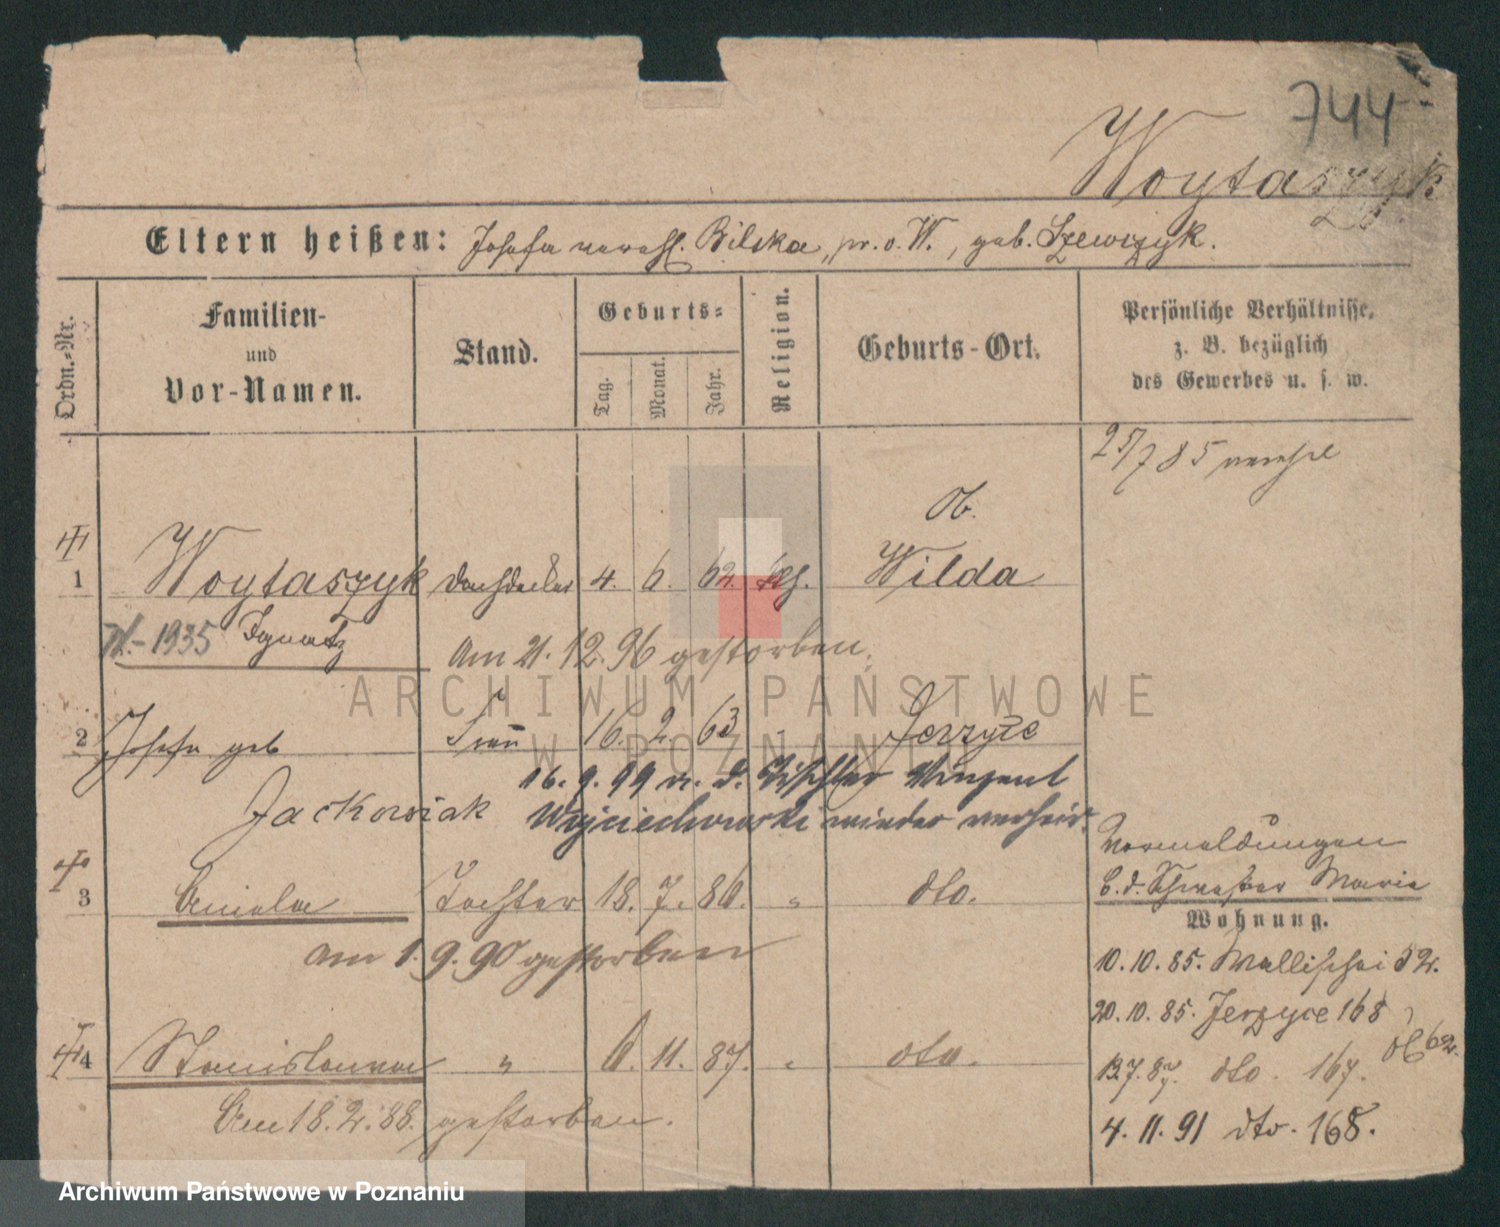 744
Woytaszyk
Eltern heißen: Josefa verehl. Bilska, pr. o. W., geb. Szewczyk.
Ordn.-Nr.
Familien-
und
Vor-Namen.
Stand.
Geburts-
Tag.
Monat.
Jahr.
Religion.
Geburts-Ort.
Persönliche Verhältnisse,
z. B. bezüglich
des Gewerbes u. s. w.
25/7 85 verehl
Ob.
1 Woytaszyk Dachdecker 4. 6. 62. kth. Wilda
1935 Ignatz
am 21. 12. 96 gestorben.
2 Josefa geb Frau 16. 2. 63 Jerzyce
Jackowiak
16. 9. 99 m. d. Tischler Vinzent
Wojciechowski wieder verheir.
3 Aniela Tochter 18. 7. 86. " dto.
am 1. 9. 90 gestorben
4 Stanislawa " 6. 11. 87. " dto.
Am 18. 2. 88. gestorben.
Vormeldungen
b. d. Schwester Marie
Wohnung.
10. 10. 85. Wallischei 52.
20. 10. 85. Jerzyce 168
13. 7. 87. dto. 167.
4. 11. 91 dto. 168.
ARCHIWUM PAŃSTWOWE
W POZNANIU
Archiwum Państwowe w Poznaniu